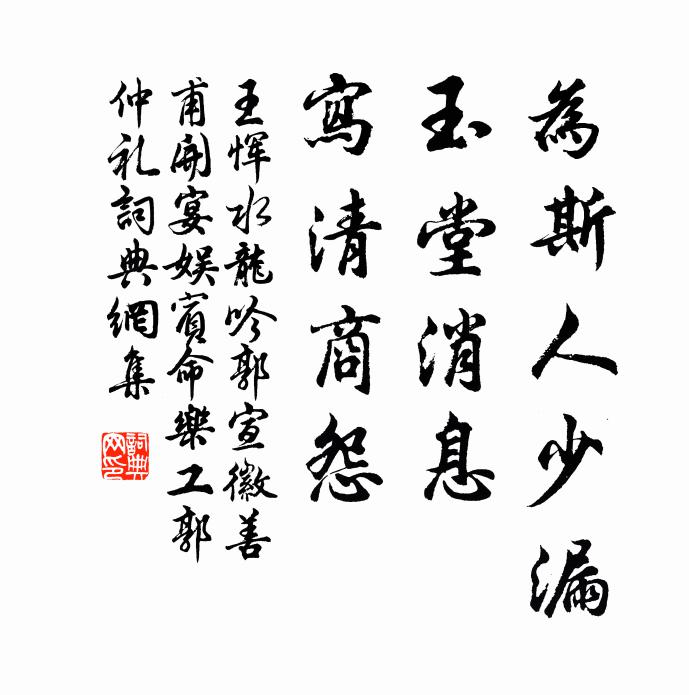 為斯人少漏
玉堂消息
寫清商怨
王惲水龍吟郭宣徽善
甫開宴娛賓命樂工郭
仲礼詞典網集
詞典网印